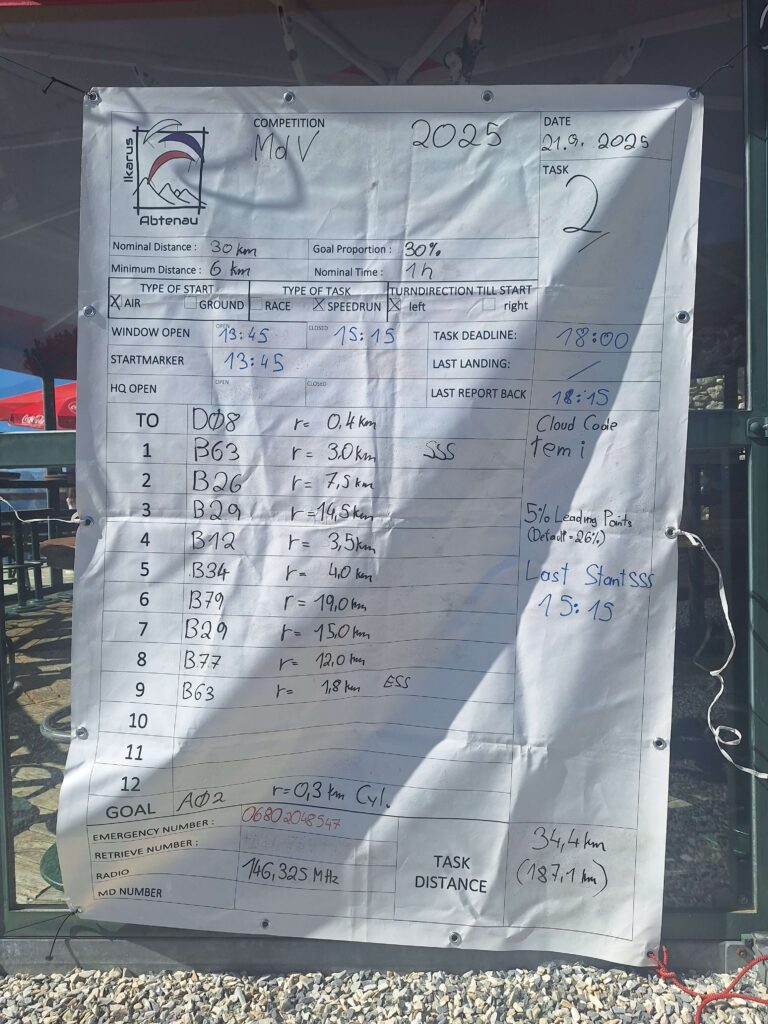 Ikarus
Abtenau
COMPETITION
MdV 2025
DATE
21.9.2025
TASK
2
Nominal Distance : 30 km Goal Proportion : 30%
Minimum Distance : 6 km Nominal Time : 1h
TYPE OF START TYPE OF TASK TURNDIRECTION TILL START
X AIR GROUND RACE X SPEEDRUN X left right
WINDOW OPEN OPEN 13:45 CLOSED 15:15 TASK DEADLINE: 18:00
STARTMARKER 13:45 LAST LANDING: /
HQ OPEN OPEN CLOSED LAST REPORT BACK 18:15
TO DØ8 r= 0,4km
1 B63 r= 3,0km SSS
2 B26 r= 7,5km
3 B29 r=14,5km
4 B12 r= 3,5km
5 B34 r= 4,0km
6 B79 r=19,0km
7 B29 r=15,0km
8 B77 r= 12,0km
9 B63 r= 1,8km ESS
10
11
12
GOAL AØ2 r=0,3km Cyl.
Cloud Code
temi
5% Leading Points
(Default=26%)
Last Start SSS
15:15
EMERGENCY NUMBER : 06802048547
RETRIEVE NUMBER :
RADIO 146,325 MHz
MD NUMBER
TASK DISTANCE
34,4km
(187,1km)
Coca-Cola